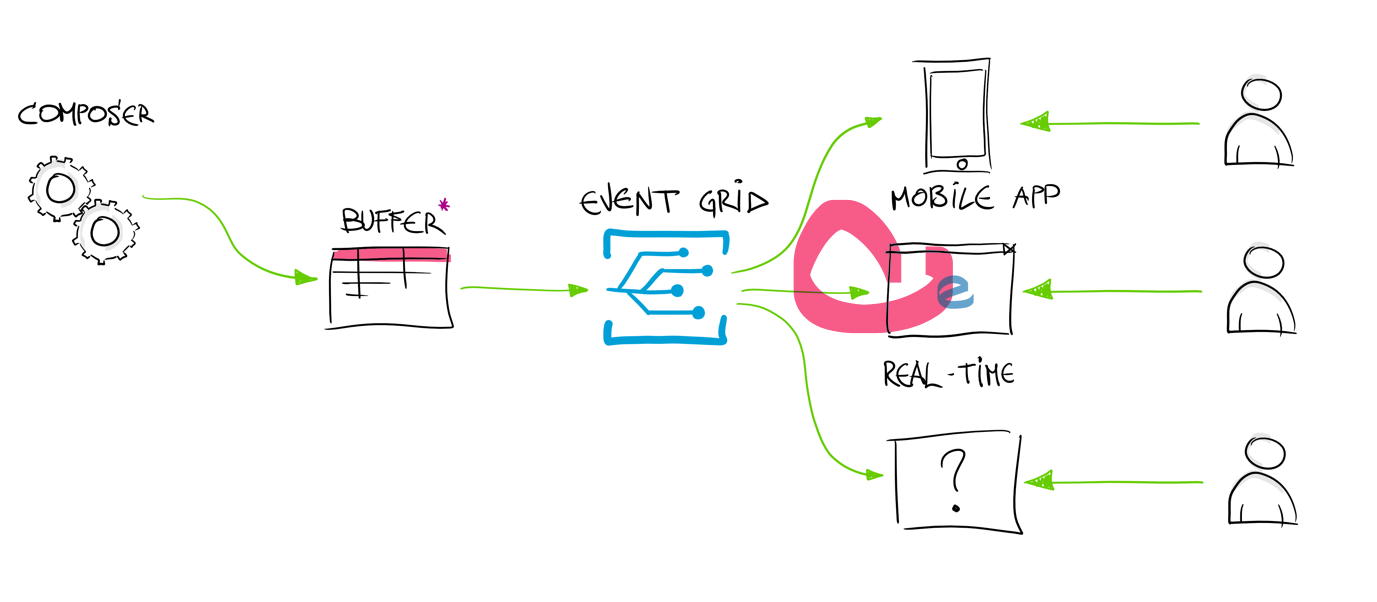 COMPOSER
BUFFER*
EVENT GRID
MOBILE APP
e
REAL-TIME
?